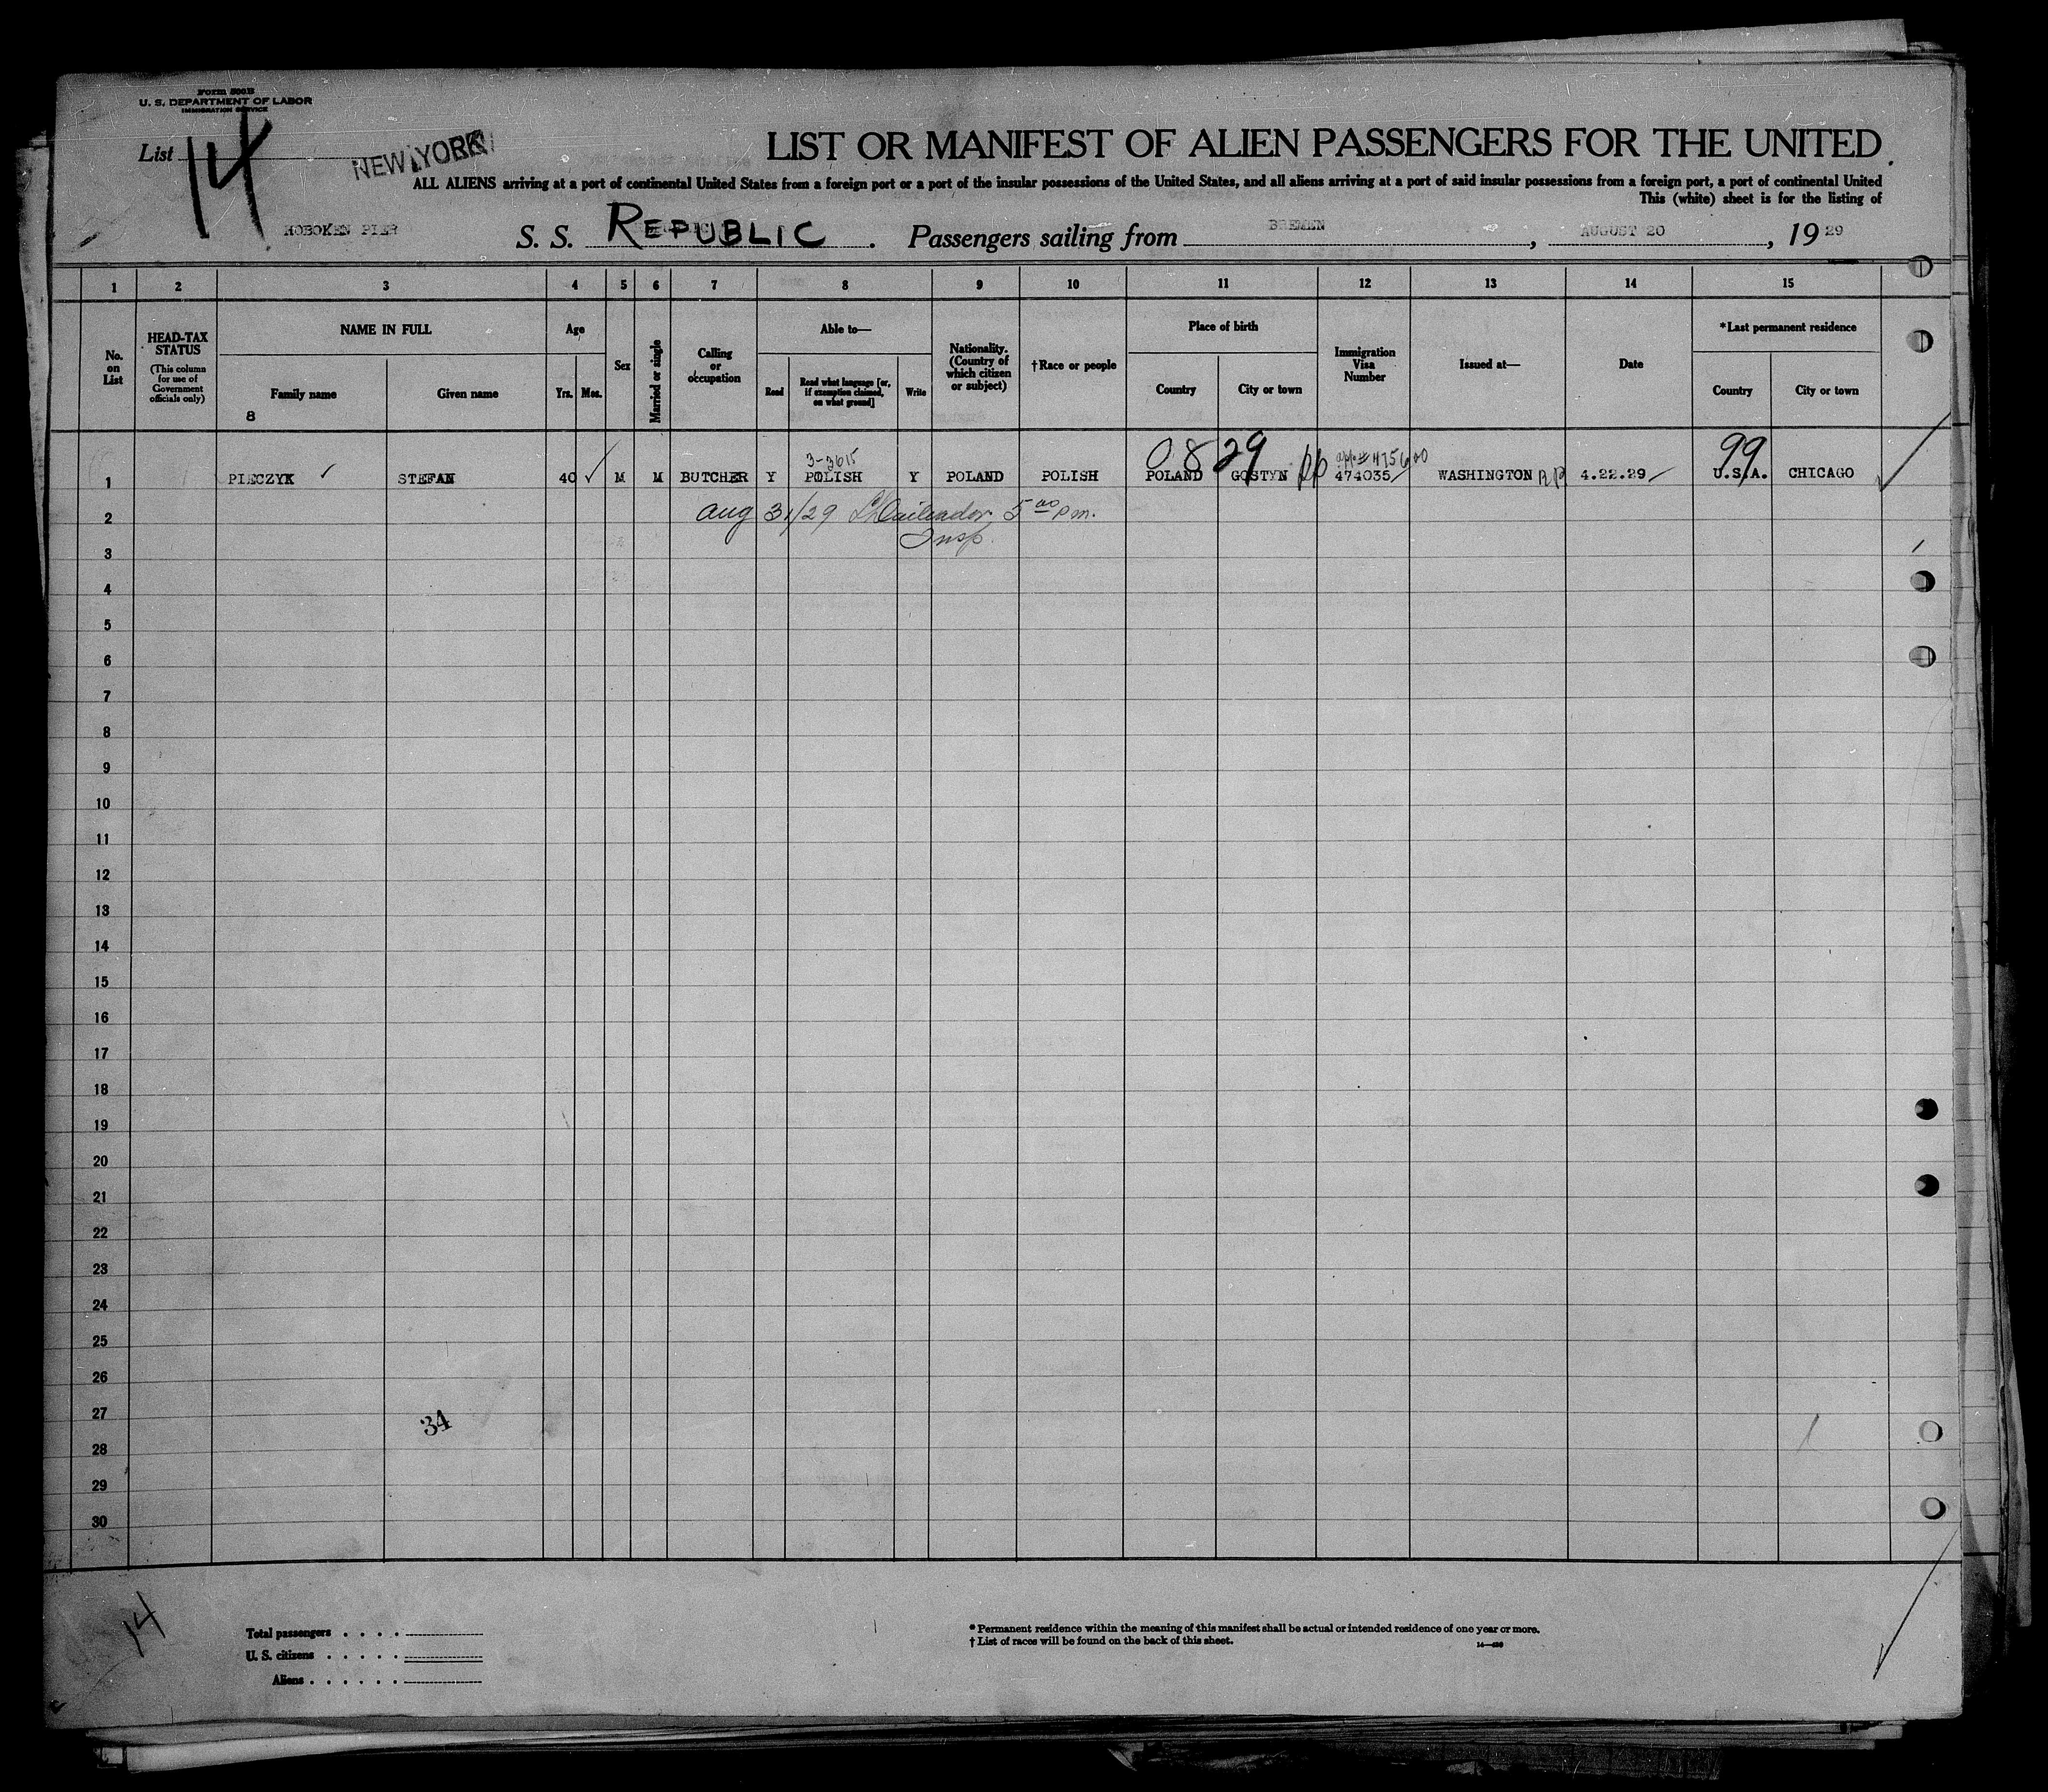 Form 500B
U. S. DEPARTMENT OF LABOR
IMMIGRATION SERVICE
List 14
NEW YORK
LIST OR MANIFEST OF ALIEN PASSENGERS FOR THE UNITED
ALL ALIENS arriving at a port of continental United States from a foreign port or a port of the insular possessions of the United States, and all aliens arriving at a port of said insular possessions from a foreign port, a port of continental United
This (white) sheet is for the listing of
HOBOKEN PIER
S. S. REPUBLIC. Passengers sailing from BREMEN, AUGUST 20, 1929
1 2 3 4 5 6 7 8 9 10 11 12 13 14 15
No. on List
HEAD-TAX STATUS
(This column for use of Government officials only)
NAME IN FULL
Family name
Given name
8
Age
Yrs. Mos.
Sex
Married or single
Calling or occupation
Able to—
Read
Read what language [or, if exemption claimed, on what ground]
Write
Nationality. (Country of which citizen or subject)
†Race or people
Place of birth
Country
City or town
Immigration Visa Number
Issued at—
Date
*Last permanent residence
Country
City or town
3-3615 0829 99
1 PIECZYK ✓ STEFAN 40 ✓ M M BUTCHER Y POLISH Y POLAND POLISH POLAND GOSTYN 474035 WASHINGTON RP 4.22.29 U.S.A. CHICAGO
2 Aug 31/29 5 00 pm.
Insp.
3
4
5
6
7
8
9
10
11
12
13
14
15
16
17
18
19
20
21
22
23
24
25
26
27
34
28
29
30
14
Total passengers . . . .
U. S. citizens . . . . .
Aliens . . . . . .
* Permanent residence within the meaning of this manifest shall be actual or intended residence of one year or more.
† List of races will be found on the back of this sheet.